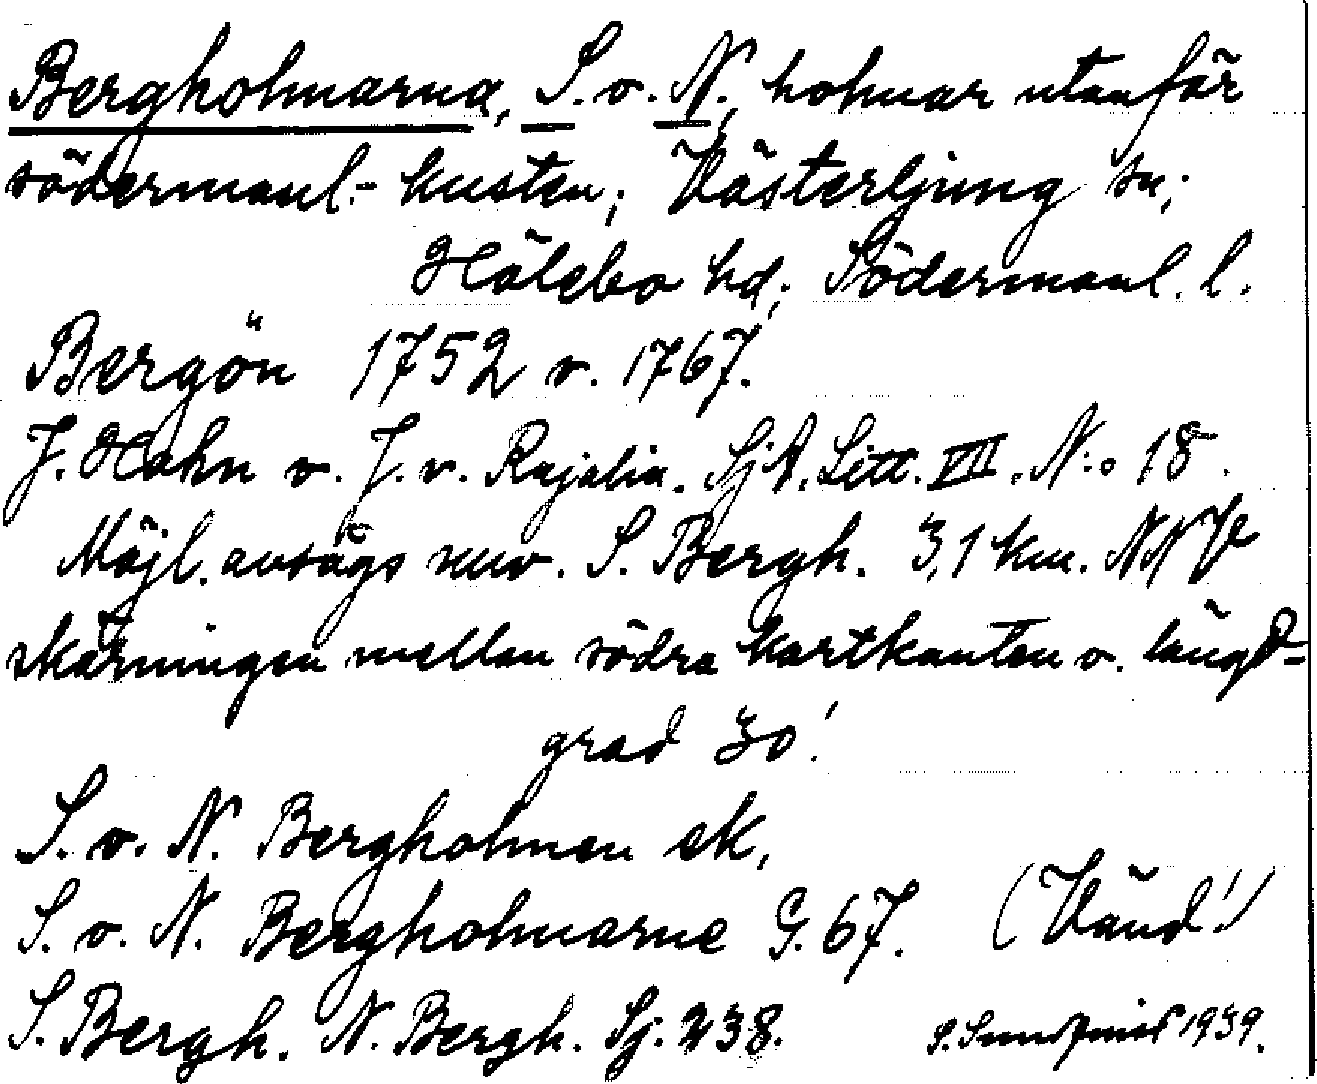 Bergholmarna, S. o. N., holmar utanför
södermanl.- kusten; Västerljung sn;
Hölebo hd; Södermanl. l.
Bergön 1752 o. 1767.
J. Hahn o. J. v. Rajalin. SjA. Litt. VII. N:o 18.
Möjl. avsågs nuv. S. Bergh. 3,1 km. NNV
skärningen mellan södra kartkanten o. längd-
grad 30'.
S. o. N. Bergholmen ek,
S. o. N. Bergholmarne G. 67. (Vänd!)
S. Bergh. N. Bergh. Sj. 238. S. Sundqvist 1939.